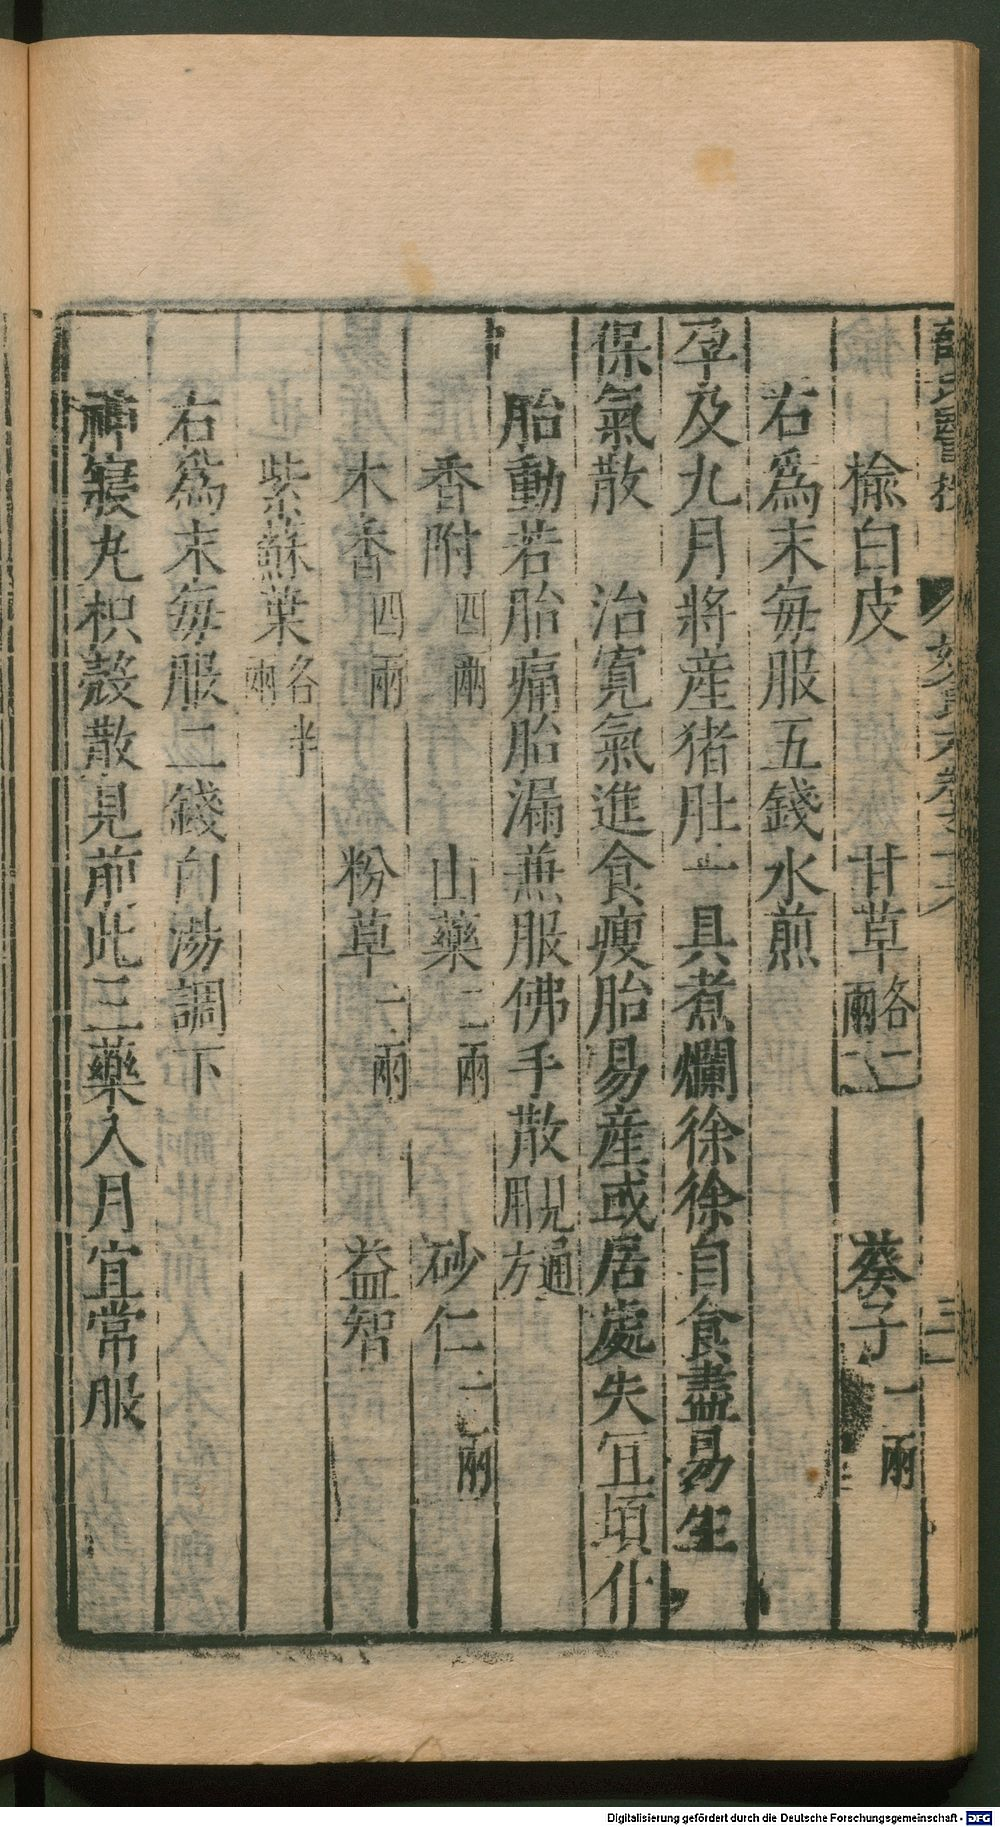 榆白皮 甘草各二兩 葵子一兩
右爲末每服五錢水煎
孕及九月將産猪肚一具煮爛徐徐自食盡易生
保氣散 治寛氣進食瘦胎易産或居處失宜頓仆
胎動若胎痛胎漏兼服佛手散見通用方
香附四兩 山藥二兩 砂仁一兩
木香四兩 粉草一兩 益智
紫蘇葉各半兩
右爲末每服二錢白湯調下
神寢丸枳殼散見前此三藥入月宜常服
Digitalisierung gefördert durch die Deutsche Forschungsgemeinschaft - DFG